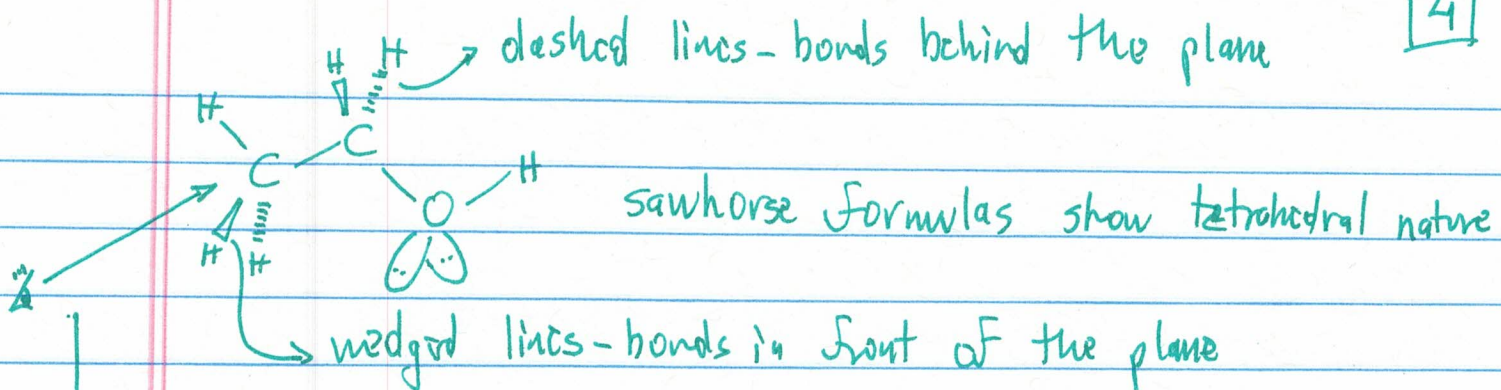 4
H H dashed lines - bonds behind the plane
H C
C H
O sawhorse formulas show tetrahedral nature
H H
wedged lines - bonds in front of the plane